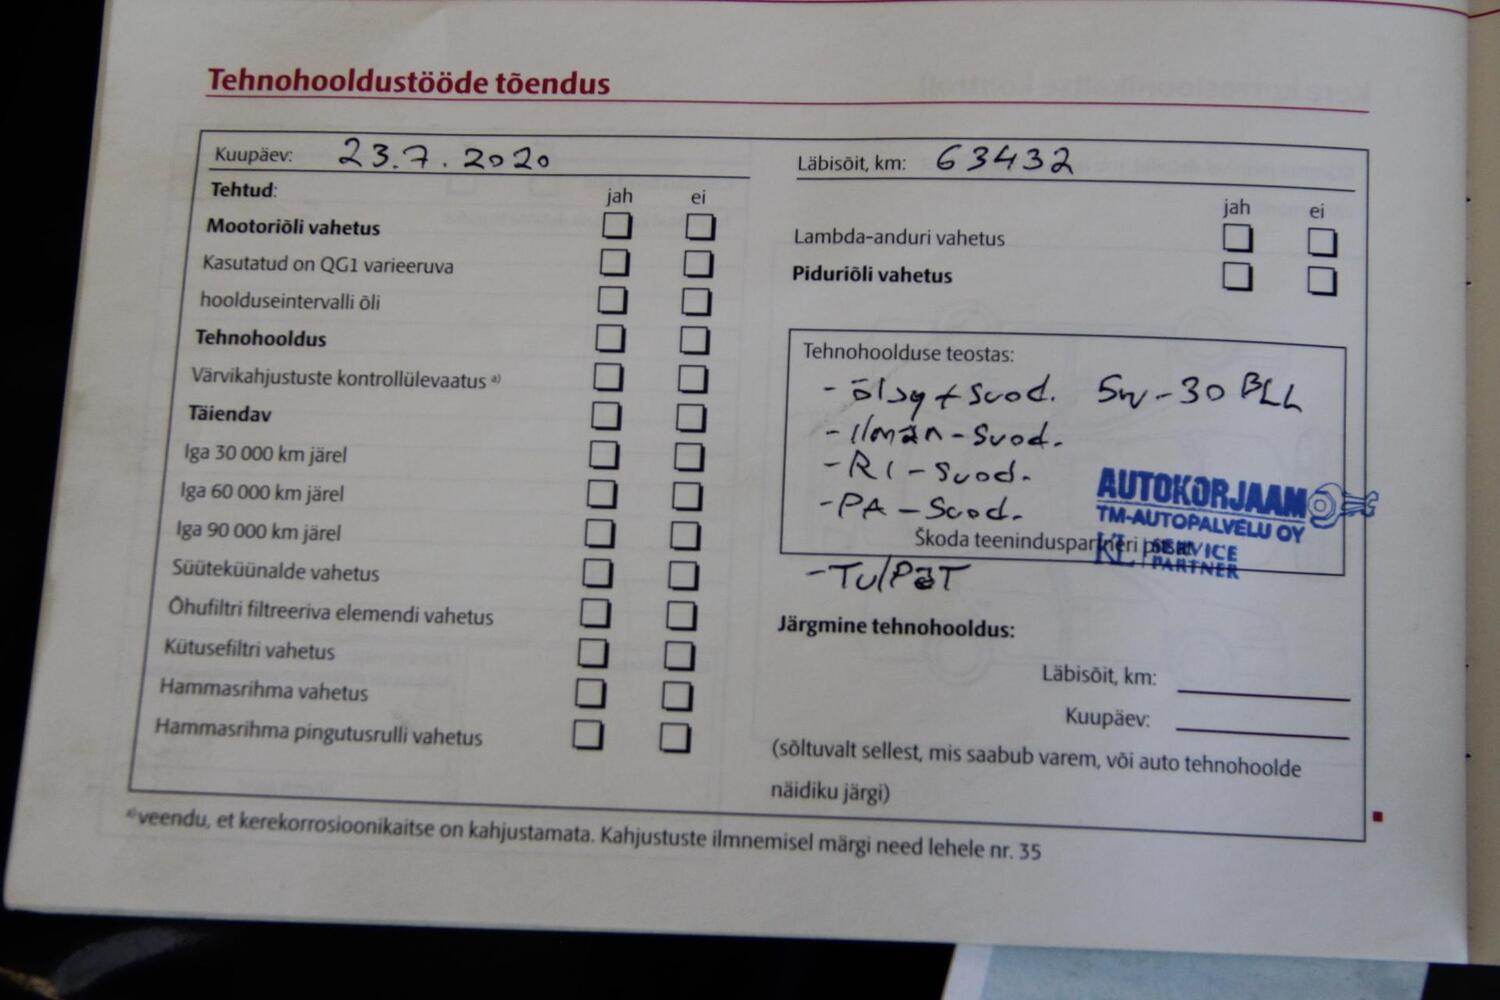 Tehnohooldustööde tõendus
Kuupäev: 23.7.2020
Tehtud: jah ei
Mootoriõli vahetus
Kasutatud on QG1 varieeruva
hoolduseintervalli õli
Tehnohooldus
Värvikahjustuste kontrollülevaatus a)
Täiendav
Iga 30 000 km järel
Iga 60 000 km järel
Iga 90 000 km järel
Süüteküünalde vahetus
Õhufiltri filtreeriva elemendi vahetus
Kütusefiltri vahetus
Hammasrihma vahetus
Hammasrihma pingutusrulli vahetus
Läbisõit, km: 63432
jah ei
Lambda-anduri vahetus
Piduriõli vahetus
Tehnohoolduse teostas:
- öljy + suod. 5w-30 BLL
- ilman-suod.
- RI-suod.
- PA-suod.
AUTOKORJAAM
TM-AUTOPALVELU OY
KL SERVICE
PARTNER
Škoda teeninduspartneri
- Tu/PäT
Järgmine tehnohooldus:
Läbisõit, km:
Kuupäev:
(sõltuvalt sellest, mis saabub varem, või auto tehnohoolde
näidiku järgi)
a) veendu, et kerekorrosioonikaitse on kahjustamata. Kahjustuste ilmnemisel märgi need lehele nr. 35